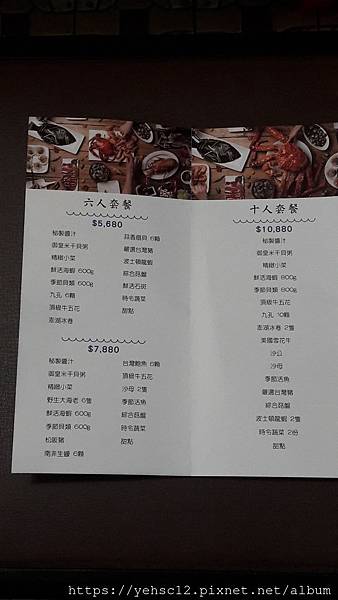 六人套餐
$5,680
秘製醬汁
御皇米干貝粥
精緻小菜
鮮活海蝦 600g
季節貝類 600g
九孔 6顆
頂級牛五花
澎湖冰卷
蒜香扇貝 6顆
嚴選台灣豬
波士頓龍蝦
綜合菇盤
鮮活石斑
時令蔬菜
甜點
$7,880
秘製醬汁
御皇米干貝粥
精緻小菜
野生大海老 6隻
鮮活海蝦 600g
季節貝類 600g
松阪豬
南非生蠔 6顆
台灣鮑魚 6顆
頂級牛五花
沙母 2隻
季節活魚
綜合菇盤
時令蔬菜
甜點
十人套餐
$10,880
秘製醬汁
御皇米干貝粥
精緻小菜
鮮活海蝦 800g
季節貝類 800g
頂級牛五花
九孔 10顆
澎湖冰卷 2隻
美國雪花牛
沙公
沙母
季節活魚
嚴選台灣豬
綜合菇盤
波士頓龍蝦 2隻
時令蔬菜 2份
甜點
https://yehsc12.pixnet.net/album